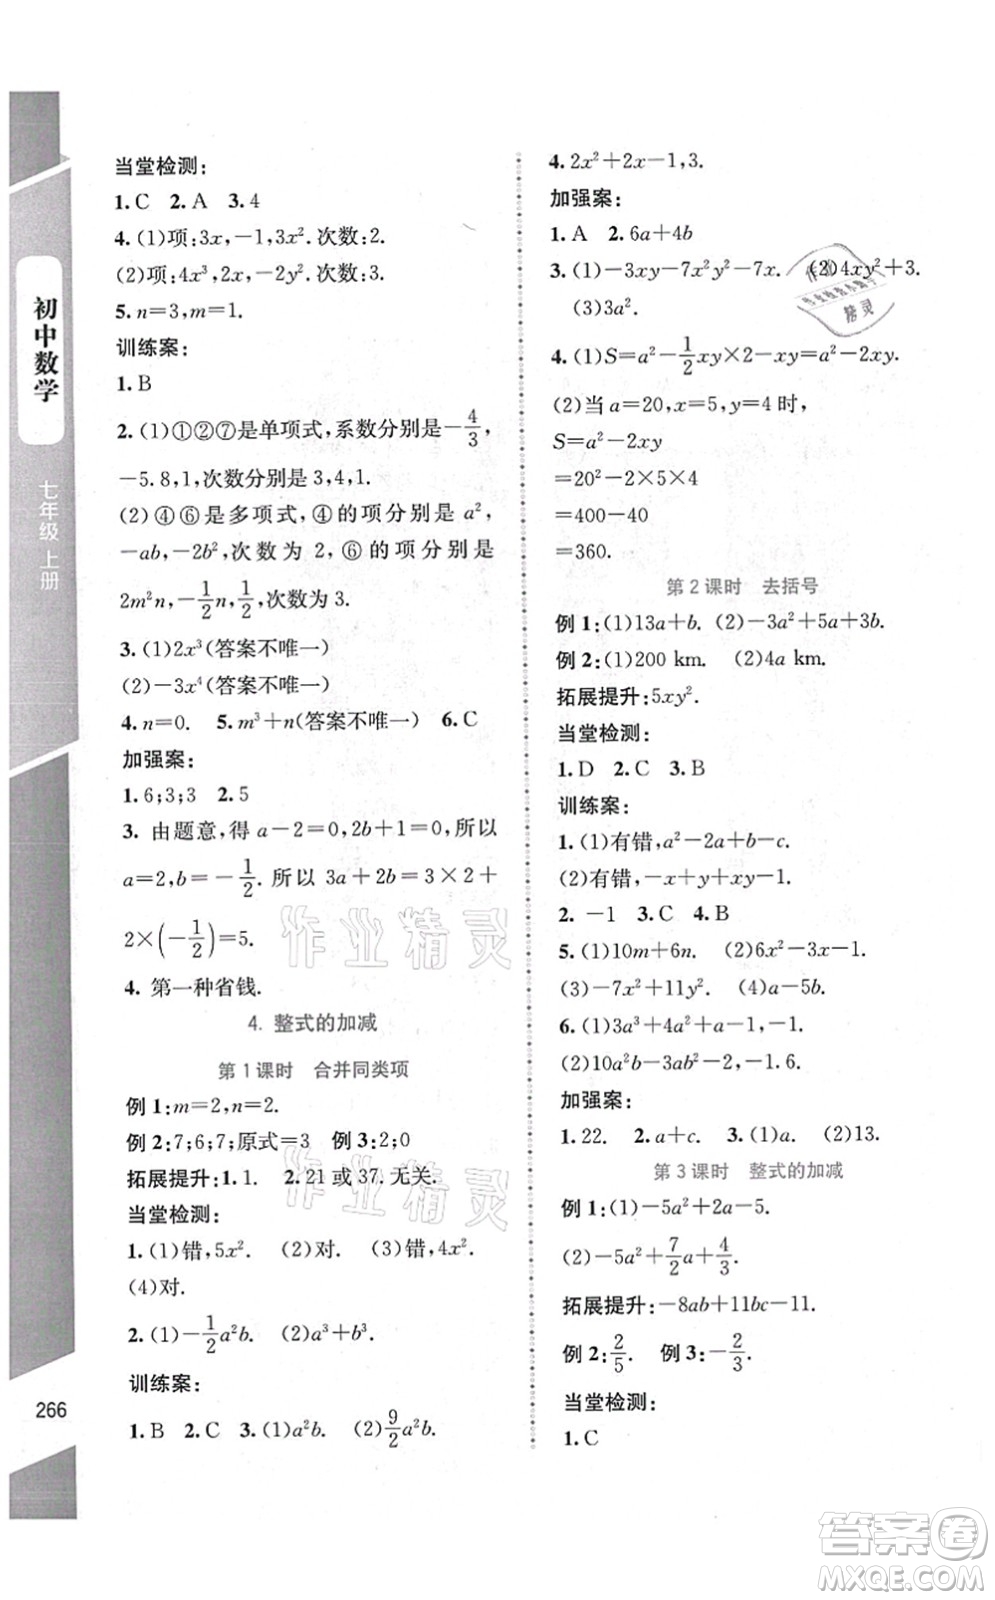 初中数学
七年级 上册
266
当堂检测:
1.C 2.A 3.4
4.(1)项:3x,-1,3x².次数:2.
(2)项:4x³,2x,-2y².次数:3.
5.n=3,m=1.
训练案:
1.B
2.(1)①②⑦是单项式,系数分别是-4/3,
-5.8,1,次数分别是3,4,1.
(2)④⑥是多项式,④的项分别是 a²,
-ab,-2b²,次数为 2,⑥的项分别是
2m²n,-1/2n,1/2,次数为 3.
3.(1)2x³(答案不唯一)
(2)-3x⁴(答案不唯一)
4.n=0. 5.m³+n(答案不唯一) 6.C
加强案:
1.6;3;3 2.5
3. 由题意,得 a-2=0,2b+1=0,所以
a=2,b=-1/2.所以 3a+2b=3×2+
2×(-1/2)=5.
4. 第一种省钱.
4. 整式的加减
第1课时 合并同类项
例1:m=2,n=2.
例2:7;6;7;原式=3 例3:2;0
拓展提升:1.1. 2.21或37.无关.
当堂检测:
1.(1)错,5x². (2)对. (3)错,4x².
(4)对.
2.(1)-1/2a²b. (2)a³+b³.
训练案:
1.B 2.C 3.(1)a²b. (2)9/2a²b.
4.2x²+2x-1,3.
加强案:
1.A 2.6a+4b
3.(1)-3xy-7x²y²-7x. (2)4xy²+3.
(3)3a².
4.(1)S=a²-1/2xy×2-xy=a²-2xy.
(2)当 a=20,x=5,y=4 时,
S=a²-2xy
=20²-2×5×4
=400-40
=360.
第2课时 去括号
例1:(1)13a+b. (2)-3a²+5a+3b.
例2:(1)200 km. (2)4a km.
拓展提升:5xy².
当堂检测:
1.D 2.C 3.B
训练案:
1.(1)有错,a²-2a+b-c.
(2)有错,-x+y+xy-1.
2. -1 3.C 4.B
5.(1)10m+6n. (2)-3x-10.
(3)-7x²+x-2. (4)a-5b.
6.(1)3a³+4a²-2a-6.
(2)10a²b-3ab²+5.
加强案:
1.22. 2.a+c. 3.(1)a. (2)13.
第3课时 整式的加减
例1:(1)-5a²+2a-5.
(2)-5a²+7/2a+4/3.
拓展提升:-8ab+11bc-11.
例2:2/5. 例3:-2/3.
当堂检测:
1.C
作业精灵
作业精灵
答案卷
MXQE.COM